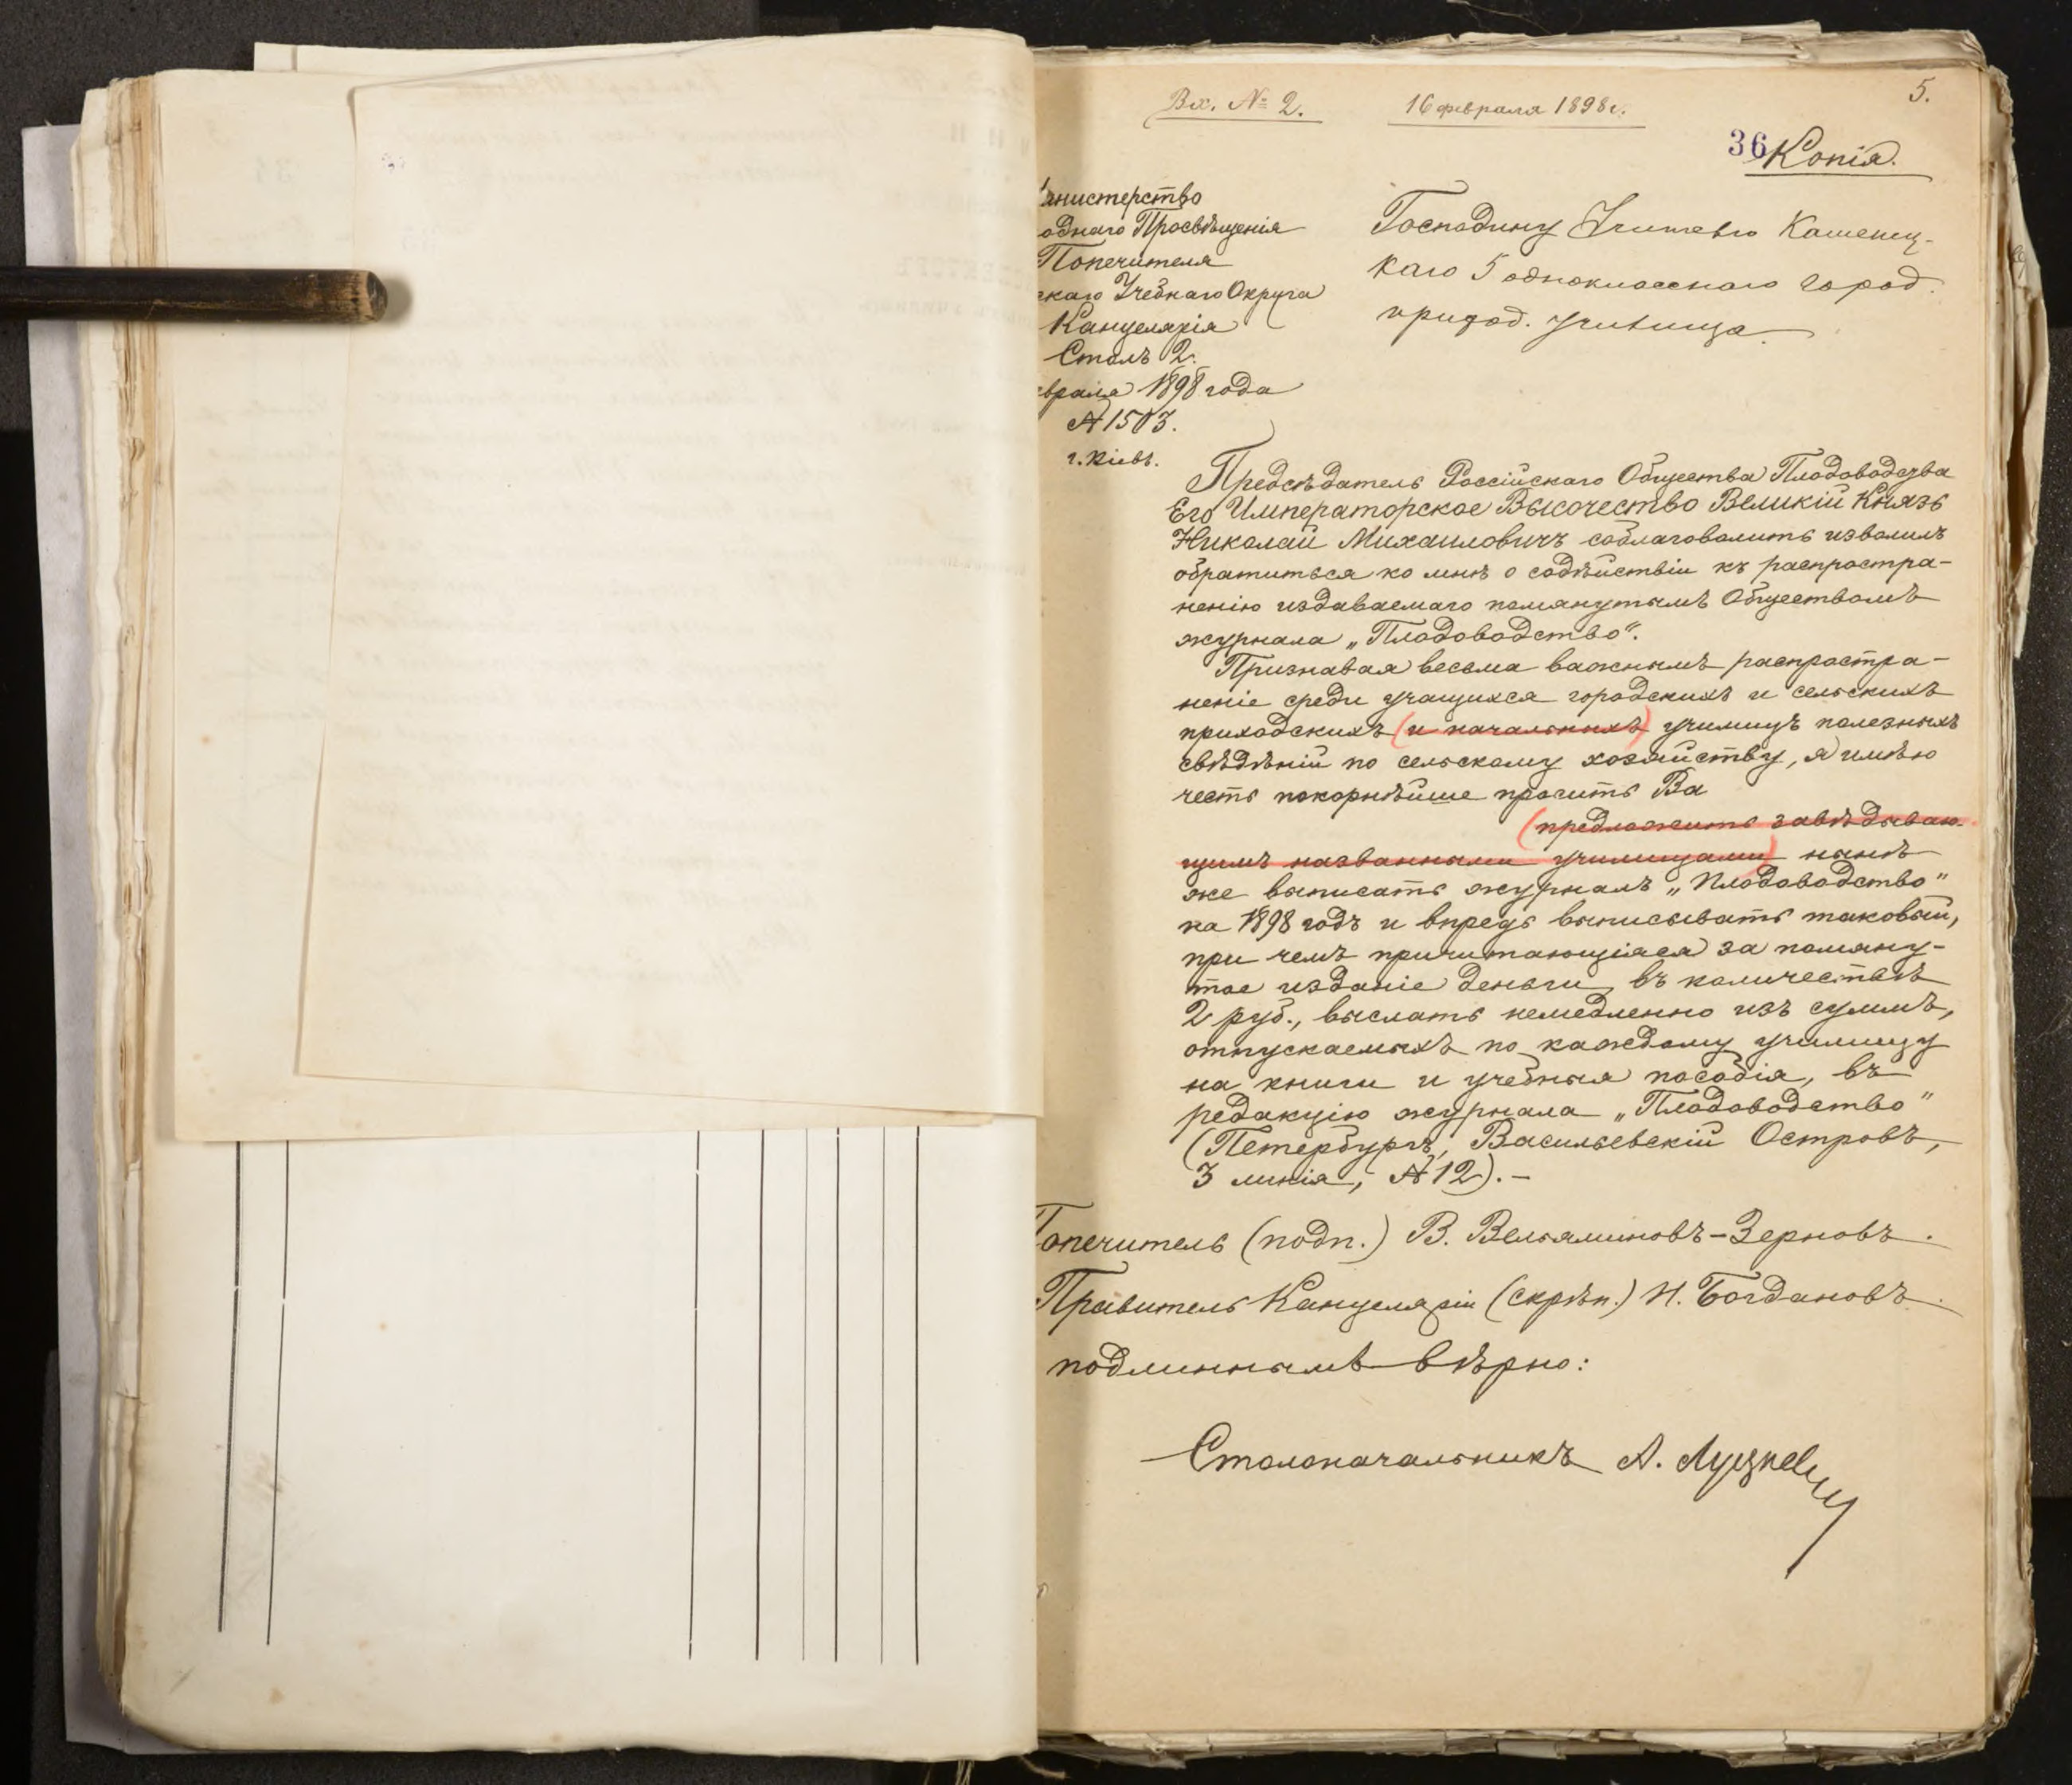 5.
Вх. № 2. 16 февраля 1898 г.
36 Копія.
инистерство
однаго Просвѣщенія
Попечителя
скаго Учебнаго Округа
Канцелярія
Столъ 2.
враля 1898 года
№ 1503.
г. Кіевъ.
Господину Учителю
каго 5 одноклосснаго город.
приход. училища.
Предсѣдатель Россійскаго Общества Плодоводства
Его Императорское Высочество Великій Князь
Николай Михаиловичъ соблаговолить изволилъ
обратиться ко мнѣ о содѣйствіи къ распростра-
ненію издаваемаго помянутымъ Обществомъ
журнала „Плодоводство“.
Признавая весьма важнымъ распростра-
неніе среди учащихся городскихъ и сельскихъ
приходскихъ (и начальныхъ) училищъ полезныхъ
свѣдѣній по сельскому хозяйству, я имѣю
честь покорнѣйше просить Ва
(предложить завѣдываю-
щимъ названными училищами) нынѣ
же выписать журналъ „Плодоводство“
на 1898 годъ и впредь выписывать таковый,
при чемъ причитающіяся за помяну-
тое изданіе деньги, въ количествѣ
2 руб., выслать немедленно изъ суммъ,
отпускаемыхъ по каждому училищу
на книги и учебныя пособія, въ
редакцію журнала „Плодоводство“
(Петербургъ, Васильевскій Островъ,
3 линія, № 12). –
Попечитель (подп.) В. Вельяминовъ-Зерновъ.
Правитель Канцеляріи (скрѣп.) Н. Богдановъ.
подлиннымъ вѣрно:
Столоначальникъ А.